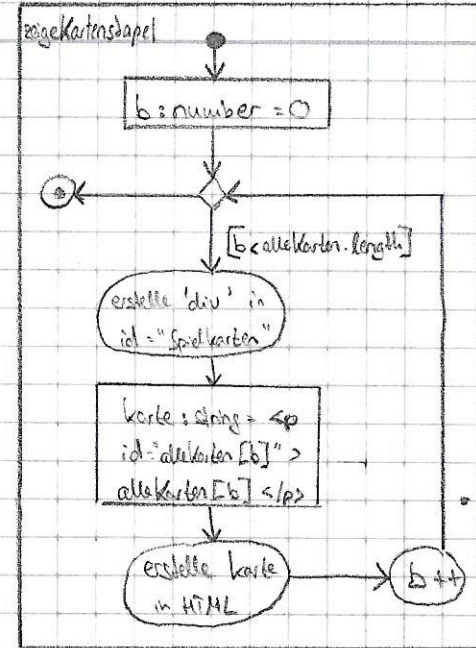 zeigeKartenstapel
b : number = 0
[b < alleKarten.length]
erstelle 'div' in
id = "Spielkarten"
karte : string = <p
id="alleKarten[b]" >
alleKarten[b] </p>
erstelle karte
in HTML
b ++